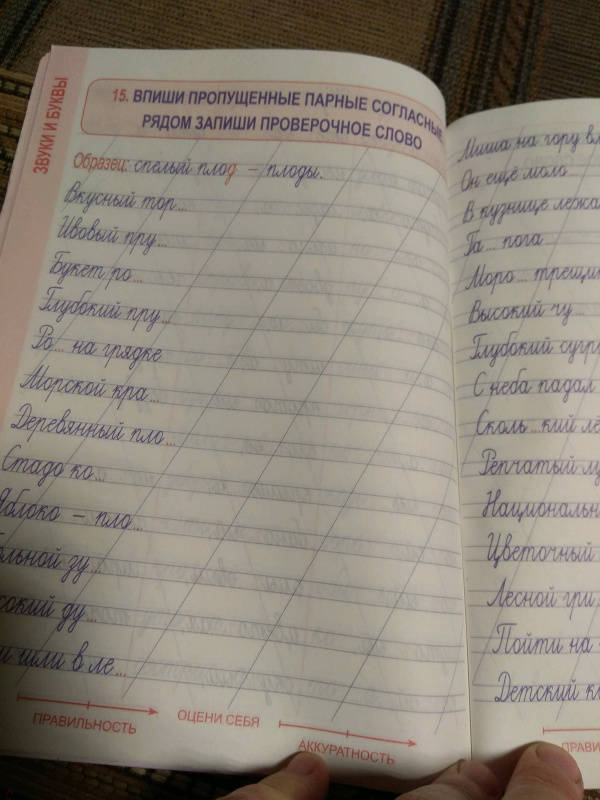 ЗВУКИ И БУКВЫ
15. ВПИШИ ПРОПУЩЕННЫЕ ПАРНЫЕ СОГЛАСНЫЕ
РЯДОМ ЗАПИШИ ПРОВЕРОЧНОЕ СЛОВО
Образец: спелый плод – плоды.
Вкусный тор...
Ивовый пру...
Букет ро...
Глубокий пру...
Ро... на грядке
Морской кра...
Деревянный пло...
Стадо ко...
Яблоко – пло...
зу...
ду...
шли в ле...
ПРАВИЛЬНОСТЬ
ОЦЕНИ СЕБЯ
АККУРАТНОСТЬ
Миша на гору
Он ещё моло...
В кузнице
Га... пога
Моро...
Высокий чу...
Глубокий
С неба падал
Сколь...кий
Репчатый
Цветочный
Лесной гри
Пойти на
Детский